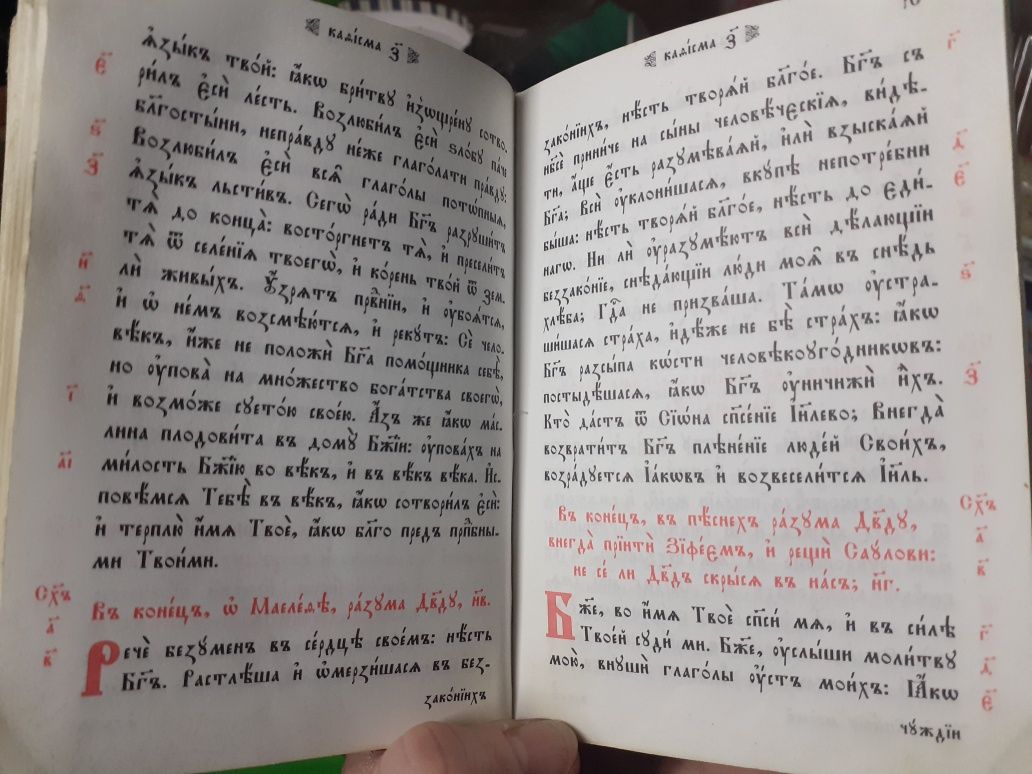 каѳі́сма з҃
ѧ҆зы́къ тво́й: ꙗ҆́кѡ бри́тву и҆зѡщре́ну сотво-
ри́лъ є҆сѝ ле́сть. Возлюби́лъ є҆сѝ ѕло́бу па́че
бл҃госты́ни, непра́вду не́же глаго́лати пра́вду:
Возлюби́лъ є҆сѝ всѧ̑ глаго́лы пото́пныѧ,
ѧ҆зы́къ льсти́въ. Сегѡ̀ ра́ди Бг҃ъ разруши́тъ
тѧ̀ до конца̀: восто́ргнетъ тѧ̀, и҆ пресели́тъ
тѧ̀ ѿ селе́нїѧ твоегѡ̀, и҆ ко́рень тво́й ѿ зем-
лѝ живы́хъ. Оу҆́зрѧтъ прв҇нїи, и҆ ᲂу҆боѧ́тсѧ,
и҆ ѡ҆ не́мъ возсмѣю́тсѧ, и҆ реку́тъ: Сѐ чело-
вѣ́къ, и҆́же не положѝ Бг҃а помо́щника себѣ̀,
но ᲂу҆пова̀ на мно́жество бога́тства своегѡ̀,
и҆ возмо́же суето́ю свое́ю. А҆́зъ же ꙗ҆́кѡ ма́с-
лина плодови́та въ домꙋ̀ Бж҃їи: ᲂу҆пова́хъ на
ми́лость Бж҃їю во вѣ́къ, и҆ въ вѣ́къ вѣ́ка. И҆с-
повѣ́мсѧ Тебѣ̀ въ вѣ́къ, ꙗ҆́кѡ сотвори́лъ є҆сѝ:
и҆ терплю̀ и҆́мѧ Твоѐ, ꙗ҆́кѡ бл҃го предъ прпбⷣны-
ми Твои́ми.
Въ коне́цъ, ѡ҆ Маеле́ѳѣ, ра́зума Дв҃ду, н҃в.
Речѐ безу́менъ въ се́рдцѣ свое́мъ: нѣ́сть
Бг҃ъ. Растлѣ́ша и҆ ѡ҆мерзи́шасѧ въ без-
зако́нїихъ
є҃
ѕ҃
з҃
и҃
ѳ҃
і҃
а҃і
Сх҃ъ
а҃
в҃
каѳі́сма з҃
зако́нїихъ, нѣ́сть творѧ́й бл҃го́е. Бг҃ъ съ
нб҃сѐ прини́че на сы́ны человѣ́ческїѧ, ви́дѣ-
ти, а҆́ще є҆́сть разумѣва́ѧй, и҆лѝ взыска́ѧй
Бг҃а; Всѝ ᲂу҆клони́шасѧ, вку́пѣ непотре́бни
бы́ша: нѣ́сть творѧ́й бл҃го́е, нѣ́сть до є҆ди́-
нагѡ. Ни лѝ ᲂу҆разумѣ́ютъ всѝ дѣ́лающїи
беззако́нїе, снѣда́ющїи лю́ди моѧ̑ въ снѣ́дь
хлѣ́ба; Гдⷭ҇а не призва́ша. Та́мѡ ᲂу҆стра-
ши́шасѧ стра́ха, и҆дѣ́же не бѣ̀ стра́хъ: ꙗ҆́кѡ
Бг҃ъ разсы́па кѡ́сти человѣкоуго́дникѡвъ:
постыдѣ́шасѧ, ꙗ҆́кѡ Бг҃ъ ᲂу҆ничижѝ и҆́хъ.
Кто̀ да́стъ ѿ Сїѡ́на спⷭ҇е́нїе І҆и҃лево; Внегда̀
возврати́тъ Бг҃ъ плѣне́нїе люде́й Свои́хъ,
возра́дуетсѧ І҆а́ковъ и҆ возвесели́тсѧ І҆и҃ль.
Въ коне́цъ, въ пѣ́снехъ ра́зума Дв҃ду,
внегда̀ прїитѝ Зїфе́ємъ, и҆ рещѝ Сау́лови:
не се́ ли Дв҃дъ скры́сѧ въ на́съ; н҃г.
Бж҃е, во и҆́мѧ Твоѐ сп҃си мѧ̀, и҆ въ си́лѣ
Твое́й суди́ ми. Бж҃е, ᲂу҆слы́ши моли́тву
мою̀, внушѝ глаго́лы ᲂу҆́стъ мои́хъ: Ꙗ҆́кѡ
чу́ждїи
г҃
д҃
є҃
ѕ҃
з҃
Сх҃ъ
а҃
в҃
г҃
д҃
є҃